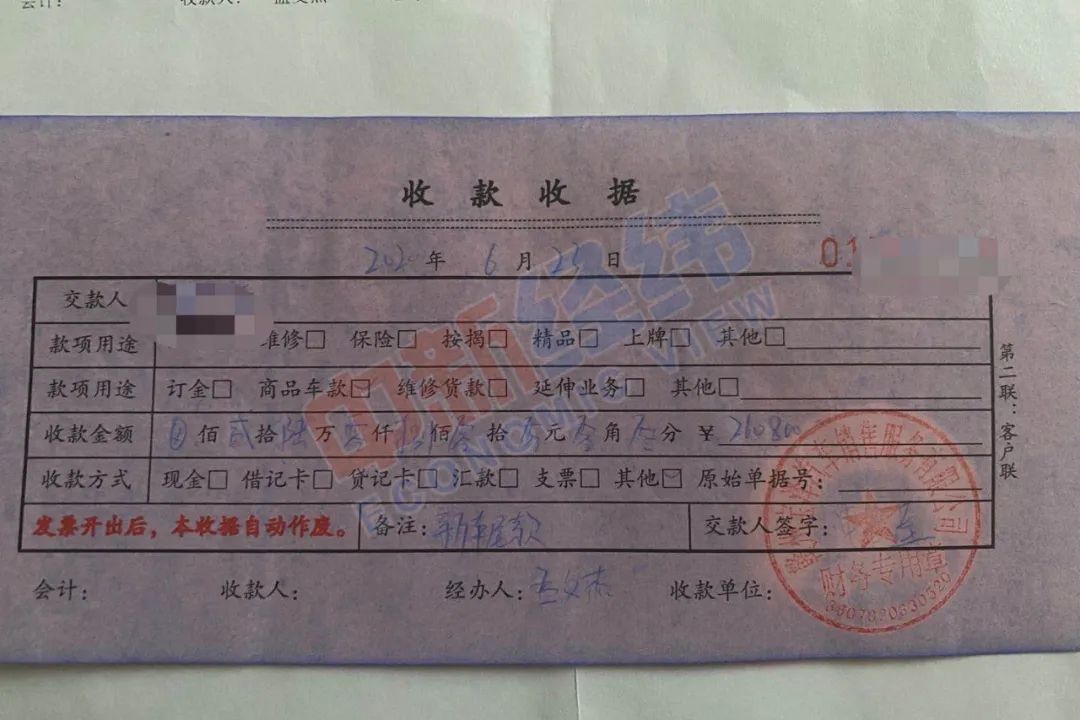 会计： 收款人：
收款收据
2020年 6月 2 日
01
交款人
款项用途 维修□ 保险□ 按揭□ 精品□ 上牌□ 其他□
款项用途 订金□ 商品车款☑ 维修货款□ 延伸业务□ 其他□
收款金额 佰贰拾陆万零仟捌佰零拾零元零角零分 ￥260800
收款方式 现金□ 借记卡□ 贷记卡□ 汇款□ 支票□ 其他☑ 原始单据号：
发票开出后，本收据自动作废。 备注：新车尾款 交款人签字：
会计： 收款人： 经办人：孟文杰 收款单位：
第二联：客户联
中新经纬
ECONOMIC VIEW
销售服务有限公司
财务专用章